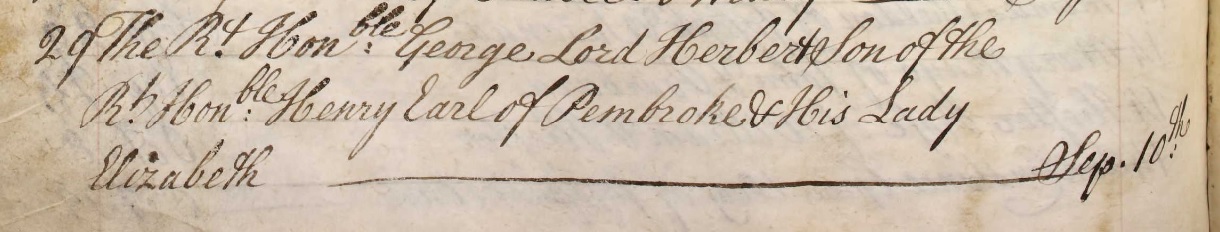 29 The Rt. Honble: George Lord Herbert Son of the
Rt. Honble: Henry Earl of Pembroke & His Lady
Elizabeth Sep. 10th: